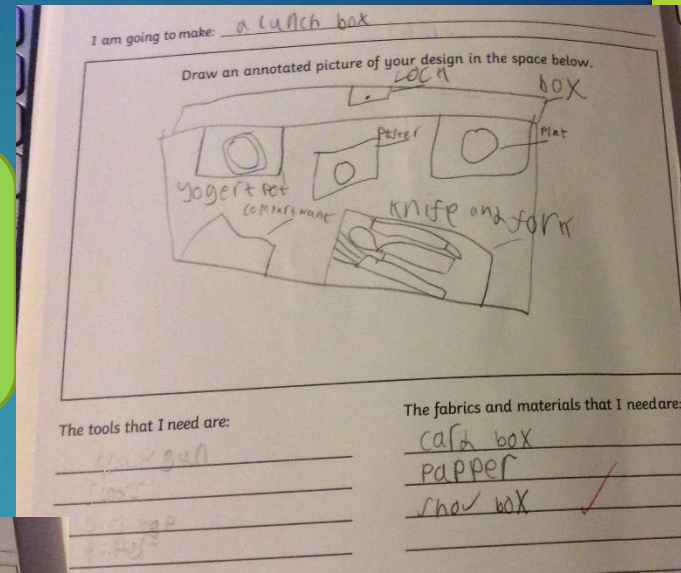 I am going to make: a lunch box
Draw an annotated picture of your design in the space below.
LOCK
box
Plat
Yogert Pot
compartmant
Knife and fork
The tools that I need are:
gun
The fabrics and materials that I need are:
card box
papper
show box